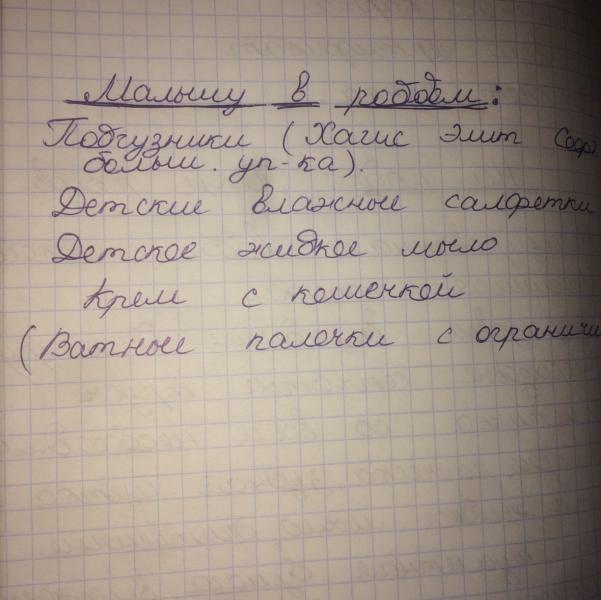 Малышу в роддом:
Подгузники (Хагис Элит Соф
больш. уп-ка).
Детские влажные салфетки
Детское жидкое мыло
Крем с кошечкой
(Ватные палочки с ограничи